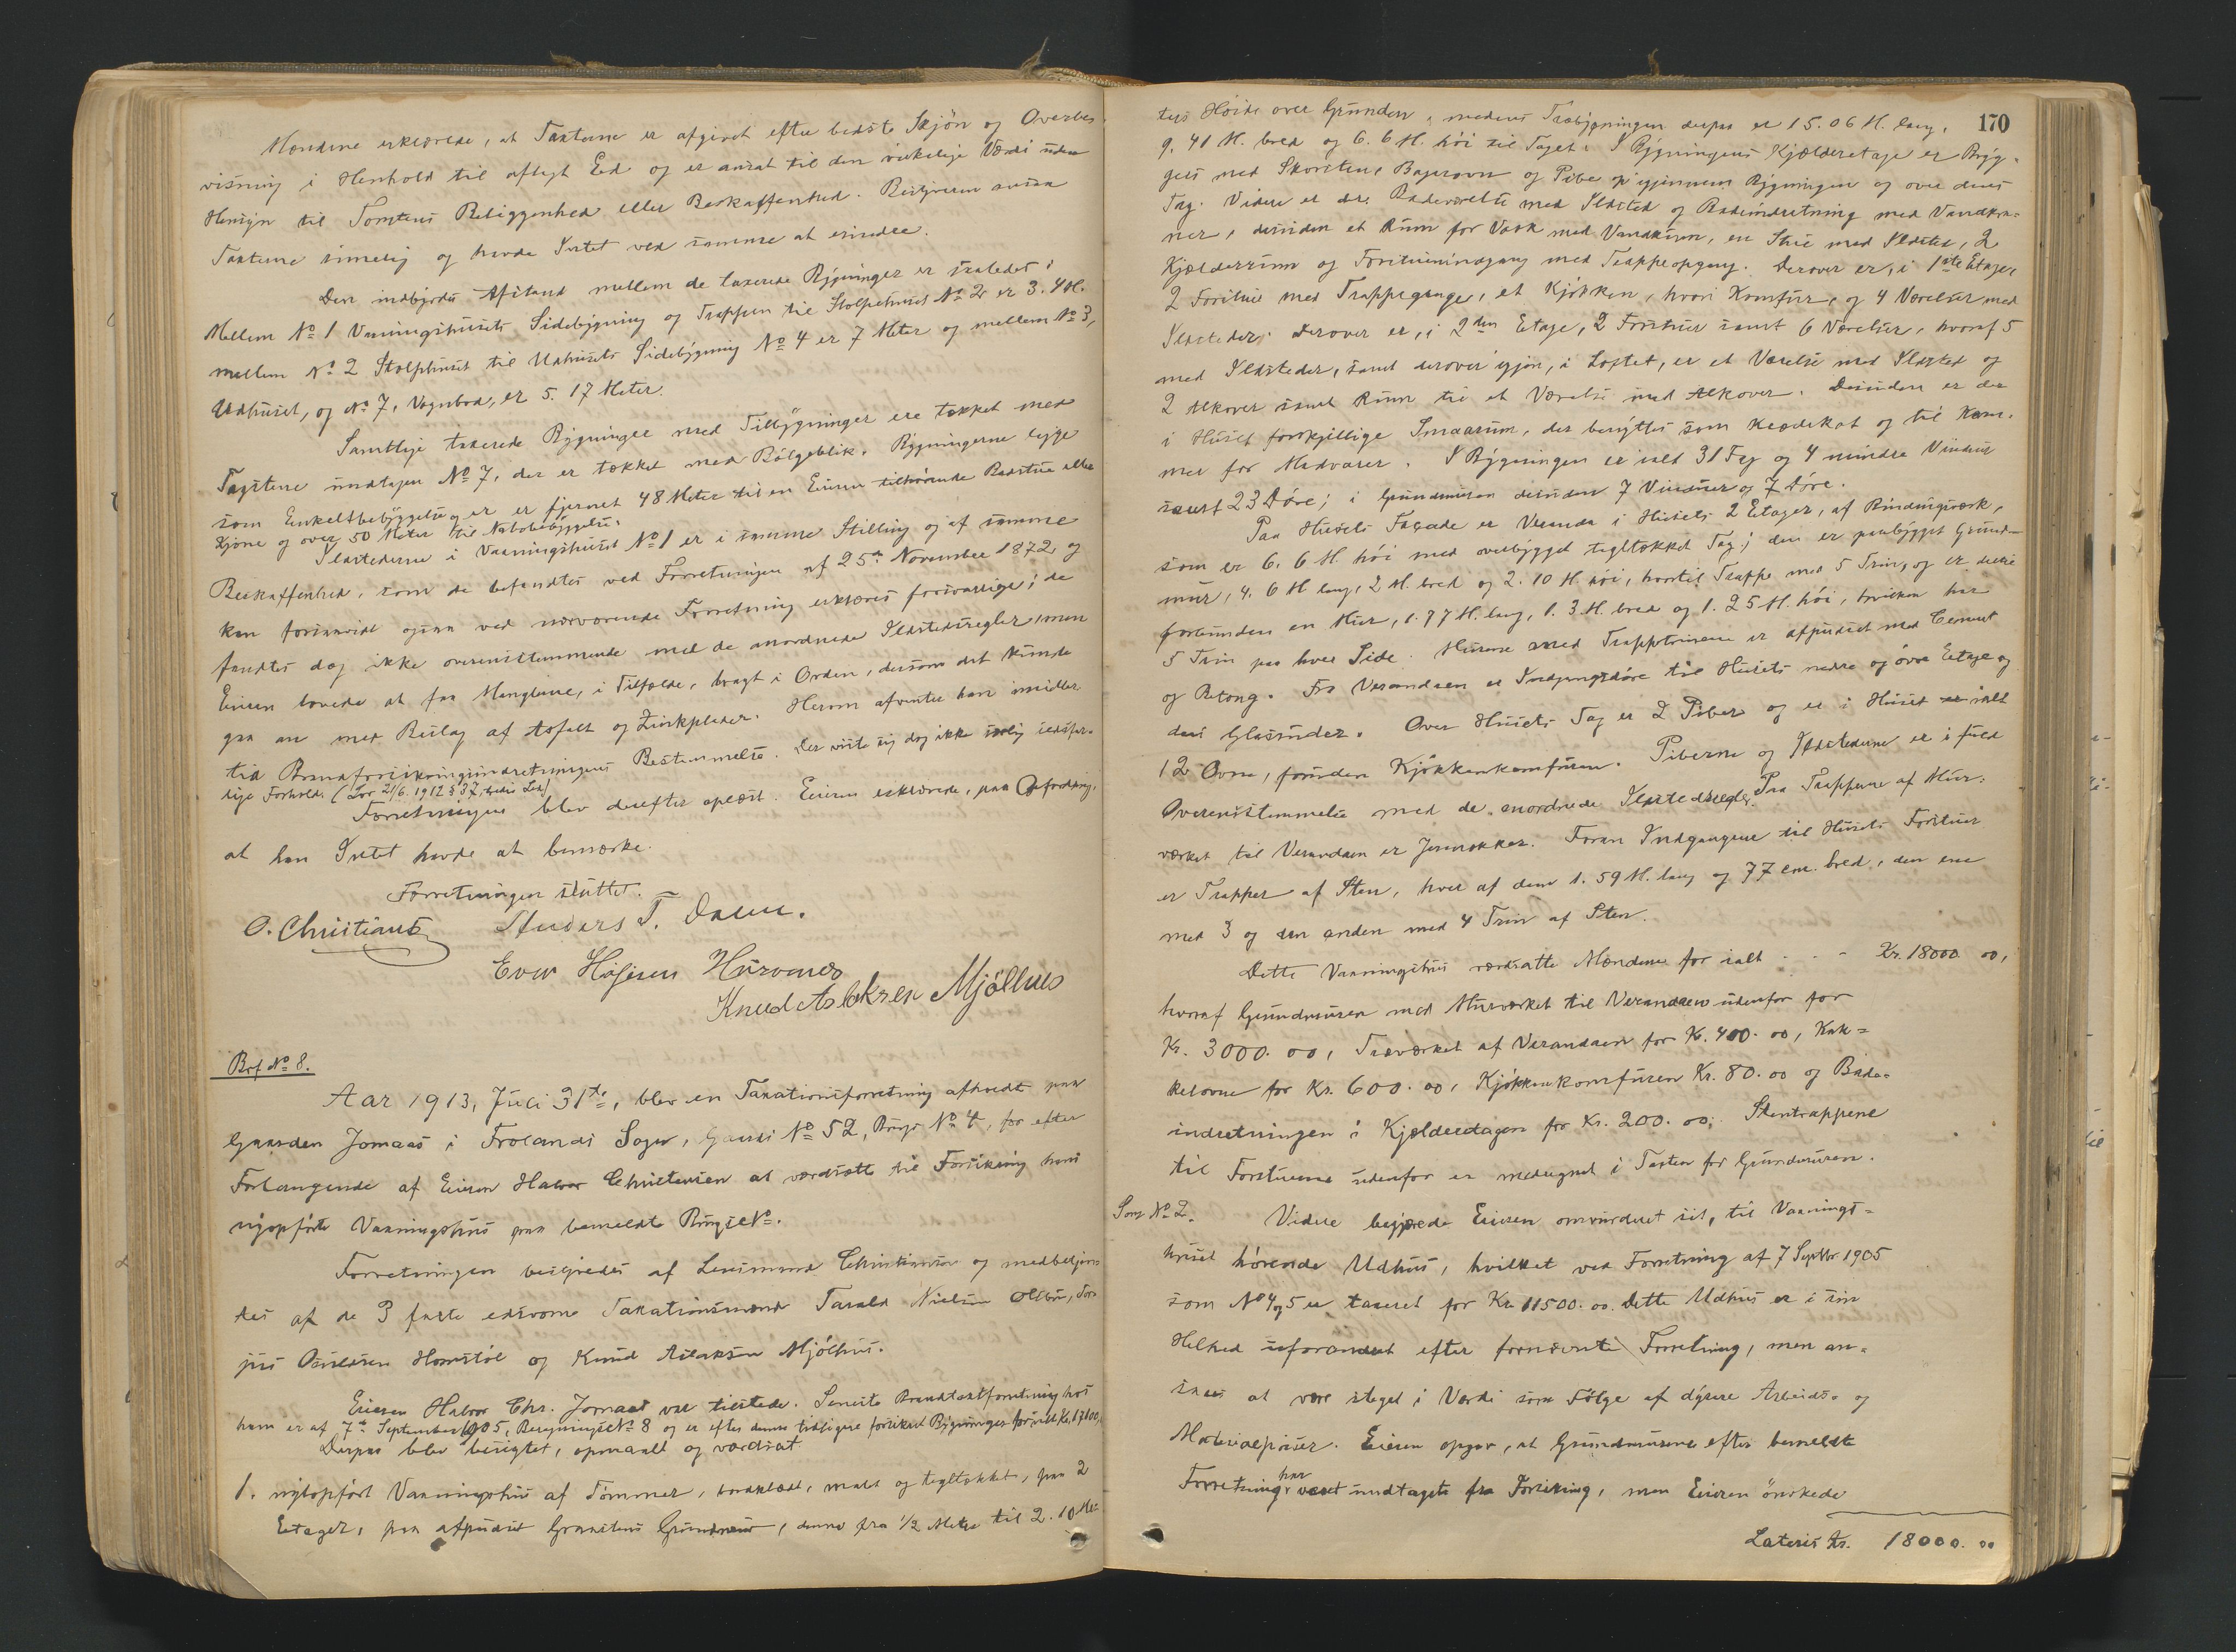 Mændene erklærede, at Taxterne er afgivet efter bedste Skjön og Overbe-
visning i Henhold til aflagt Ed og er ansat til den virkelige Værdi uden
Hensyn til Tomtens Beliggenhed eller Beskaffenhed. Bestyreren ansaa
Taxterne rimelig og havde Intet ved samme at erindre.
Den indbyrdes Afstand mellem de taxerede Bygninger er saaledes:
Mellem No 1 Vaaningshusets Sidebygning og Trappen til Stolpehuset No 2 er 3.40.
mellem No 2 Stolphuset til Udhusets Sidebygning No 4 er 7 Meter og mellem No 3,
Udhuset, og No 7, Vognbod, er 5.17 Meter.
Samtlige taxerede Bygninger med Tilbygninger ere tækket med
Tagstene undtagen No 7, der er tækket med Bölgeblik. Bygningerne ligge
som Enkeltbebyggelse, er fjernet 48 Meter til en Eieren tilhörende Badstue eller
Kjöne og over 50 Meter til Nabobebyggelse.
Ildstederne i Vaaningshuset No 1 er i samme Stilling og af samme
Beskaffenhed, som de befandtes ved Forretningen af 25de November 1872 og
kan forsaavidt ogsaa ved nærværende Forretning erklæres forsvarlige; de
fandtes dog ikke overensstemmende med de anordnede Ildstedsregler, men
Eieren lovede at faa Manglerne, i Tilfælde, bragt i Orden, dersom det kunde
gaa an med Beslag af Asfalt og Zinkplader. Herom afventer han imidler
tid Brandforsikringsindretningens Bestemmelse. Der viste sig dog ikke ildsfar-
lige Forhold. (Lov 21/6. 1912 § 37, Led)
Forretningen blev derefter oplæst. Eieren erklærede, paa Opfordring,
at han Intet havde at bemærke.
Forretningen sluttet.
O. Christians Anders T. Dalen.
Ever Höjesen Hurvenes
Knud Aslaksen Mjölhus
Brf No 8.
Aar 1913, Juli 31te, blev en Taxationsforretning afholdt paa
Gaarden Jomaas i Frolands Sogn, Gaards No 52, Brugs No 4, for efter
Forlangende af Eieren Halvor Christensen at værdsætte til Forsikring hans
nyopförte Vaaningshus paa bemeldte Brugs No.
Forretningen bestyredes af Lensmand Christiansen og medbetjen-
tes af de 3 faste edsvorne Taxationsmænd Tarald Nielsen Olsbu, Tor
jus Osuldsen Hornstöl og Knud Aslaksen Mjölhus.
Eieren Halvor Chr. Jomaas var tilstede. Seneste Brandtaxtforretning hos
ham er af 7de September 1905, Beregnings No 8 og er efter denne tidligere forsikret Bygninger for ialt Kr. 17100,
Derpaa blev besigtet, opmaalt og værdsat
1. nyopfört Vaaningshus af Tömmer, bordklædt, malet og tegltækket, paa 2
Etager, paa afpudset Graastens Grundmur, denne fra 1/2 Meter til 2.10 Me-
170
ters Höide over Grunden, medens Træbygningen derpaa er 15.06 M. lang,
9.41 M. bred og 6.6 M. höi til Taget. I Bygningens Kjælderetage er Bryg-
gers med Skorsten, Bagerovn og Pibe op igjennem Bygningen og over dens
Tag. Videre er der Badeværelse med Ildsted og Badeindretning med Vandkra-
ner, desuden et Rum for Vask med Vandkran, en Stue med Ildsted, 2
Kjælderrum og Forstueindgang med Trappeopgang. Derover er, i 1ste Etage,
2 Forstuer med Trappegange, et Kjökken, hvori Komfur, og 4 Værelser med
Ildsteder. Derover er, i 2den Etage, 2 Forstuer samt 6 Værelser, hvoraf 5
med Ildsteder, samt derover igjen, i Loftet, er et Værelse med Ildsted og
2 Alkover samt Rum til et Værelse med Alkover. Desuden er der
i Huset forskjellige Smaarum, der benyttes som Klædeskot og til Kam-
mer for Madvarer. I Bygningen er ialt 31 Fag og 4 mindre Vinduer
samt 23 Döre; i Grundmuren desuden 7 Vinduer og 7 Döre.
Paa Husets Façade er Veranda i Husets 2 Etager, af Bindingsværk,
som er 6.6 M. höi med overbygget tegltækket Tag; den er paabygget Grund-
mur, 4.6 M lang, 2 M. bred og 2.10 M. höi, hvortil Trappe med 5 Trin, og er dertil
forbunden en Mur, 1.77 M. lang, 1.3 M. bred og 1.25 M. höi, hvilken har
5 Trin paa hver Side. Murene med Trappetrinene er afpudset med Cement
og Betong. Fra Verandaen er Indgangsdöre til Husets nedre og övre Etage og
dens Glasruder. Over Husets Tag er 2 Piber og er i Huset ialt
12 Ovne, foruden Kjökkenkomfuren. Piberne og Ildstederne er i fuld
Overensstemmelse med de anordnede Ildstedsregler. Paa Trapperne af Mur-
værket til Verandaen er Jernrækker. Foran Indgangene til Husets Forstuer
er Trapper af Sten, hver af dem 1.59 M. lang og 77 cm. bred, den ene
med 3 og den anden med 4 Trin af Sten.
Dette Vaaningshus værdsatte Mændene for ialt - - - Kr. 18000.00,
hvoraf Grundmuren med Murværket til Verandaen udenfor for
Kr. 3000.00, Træværket af Verandaen for Kr. 400.00, Kak-
kelovne for Kr. 600.00, Kjökkenkomfuren Kr. 80.00 og Bade-
indretningen i Kjælderetagen for Kr. 200.00. Stentrapperne
til Forstuerne udenfor er medregnet i Taxten for Grundmuren.
Som No 2. Videre begjærede Eieren omvurderet sit, til Vaanings-
huset hörende Udhus, hvilket ved Forretning af 7 Septbr. 1905
som No 4 og 5 er taxeret for Kr. 11500.00. Dette Udhus er i sin
Helhed uforandret efter fornævnte Forretning, men an-
saaes at være steget i Værdi som Fölge af dyrere Arbeids- og
Materialpriser. Eieren opgav, at Grundmurene efter bemeldte
Forretning har været undtaget fra Forsikring, men Eieren önskede
Lateris Kr. 18000.00